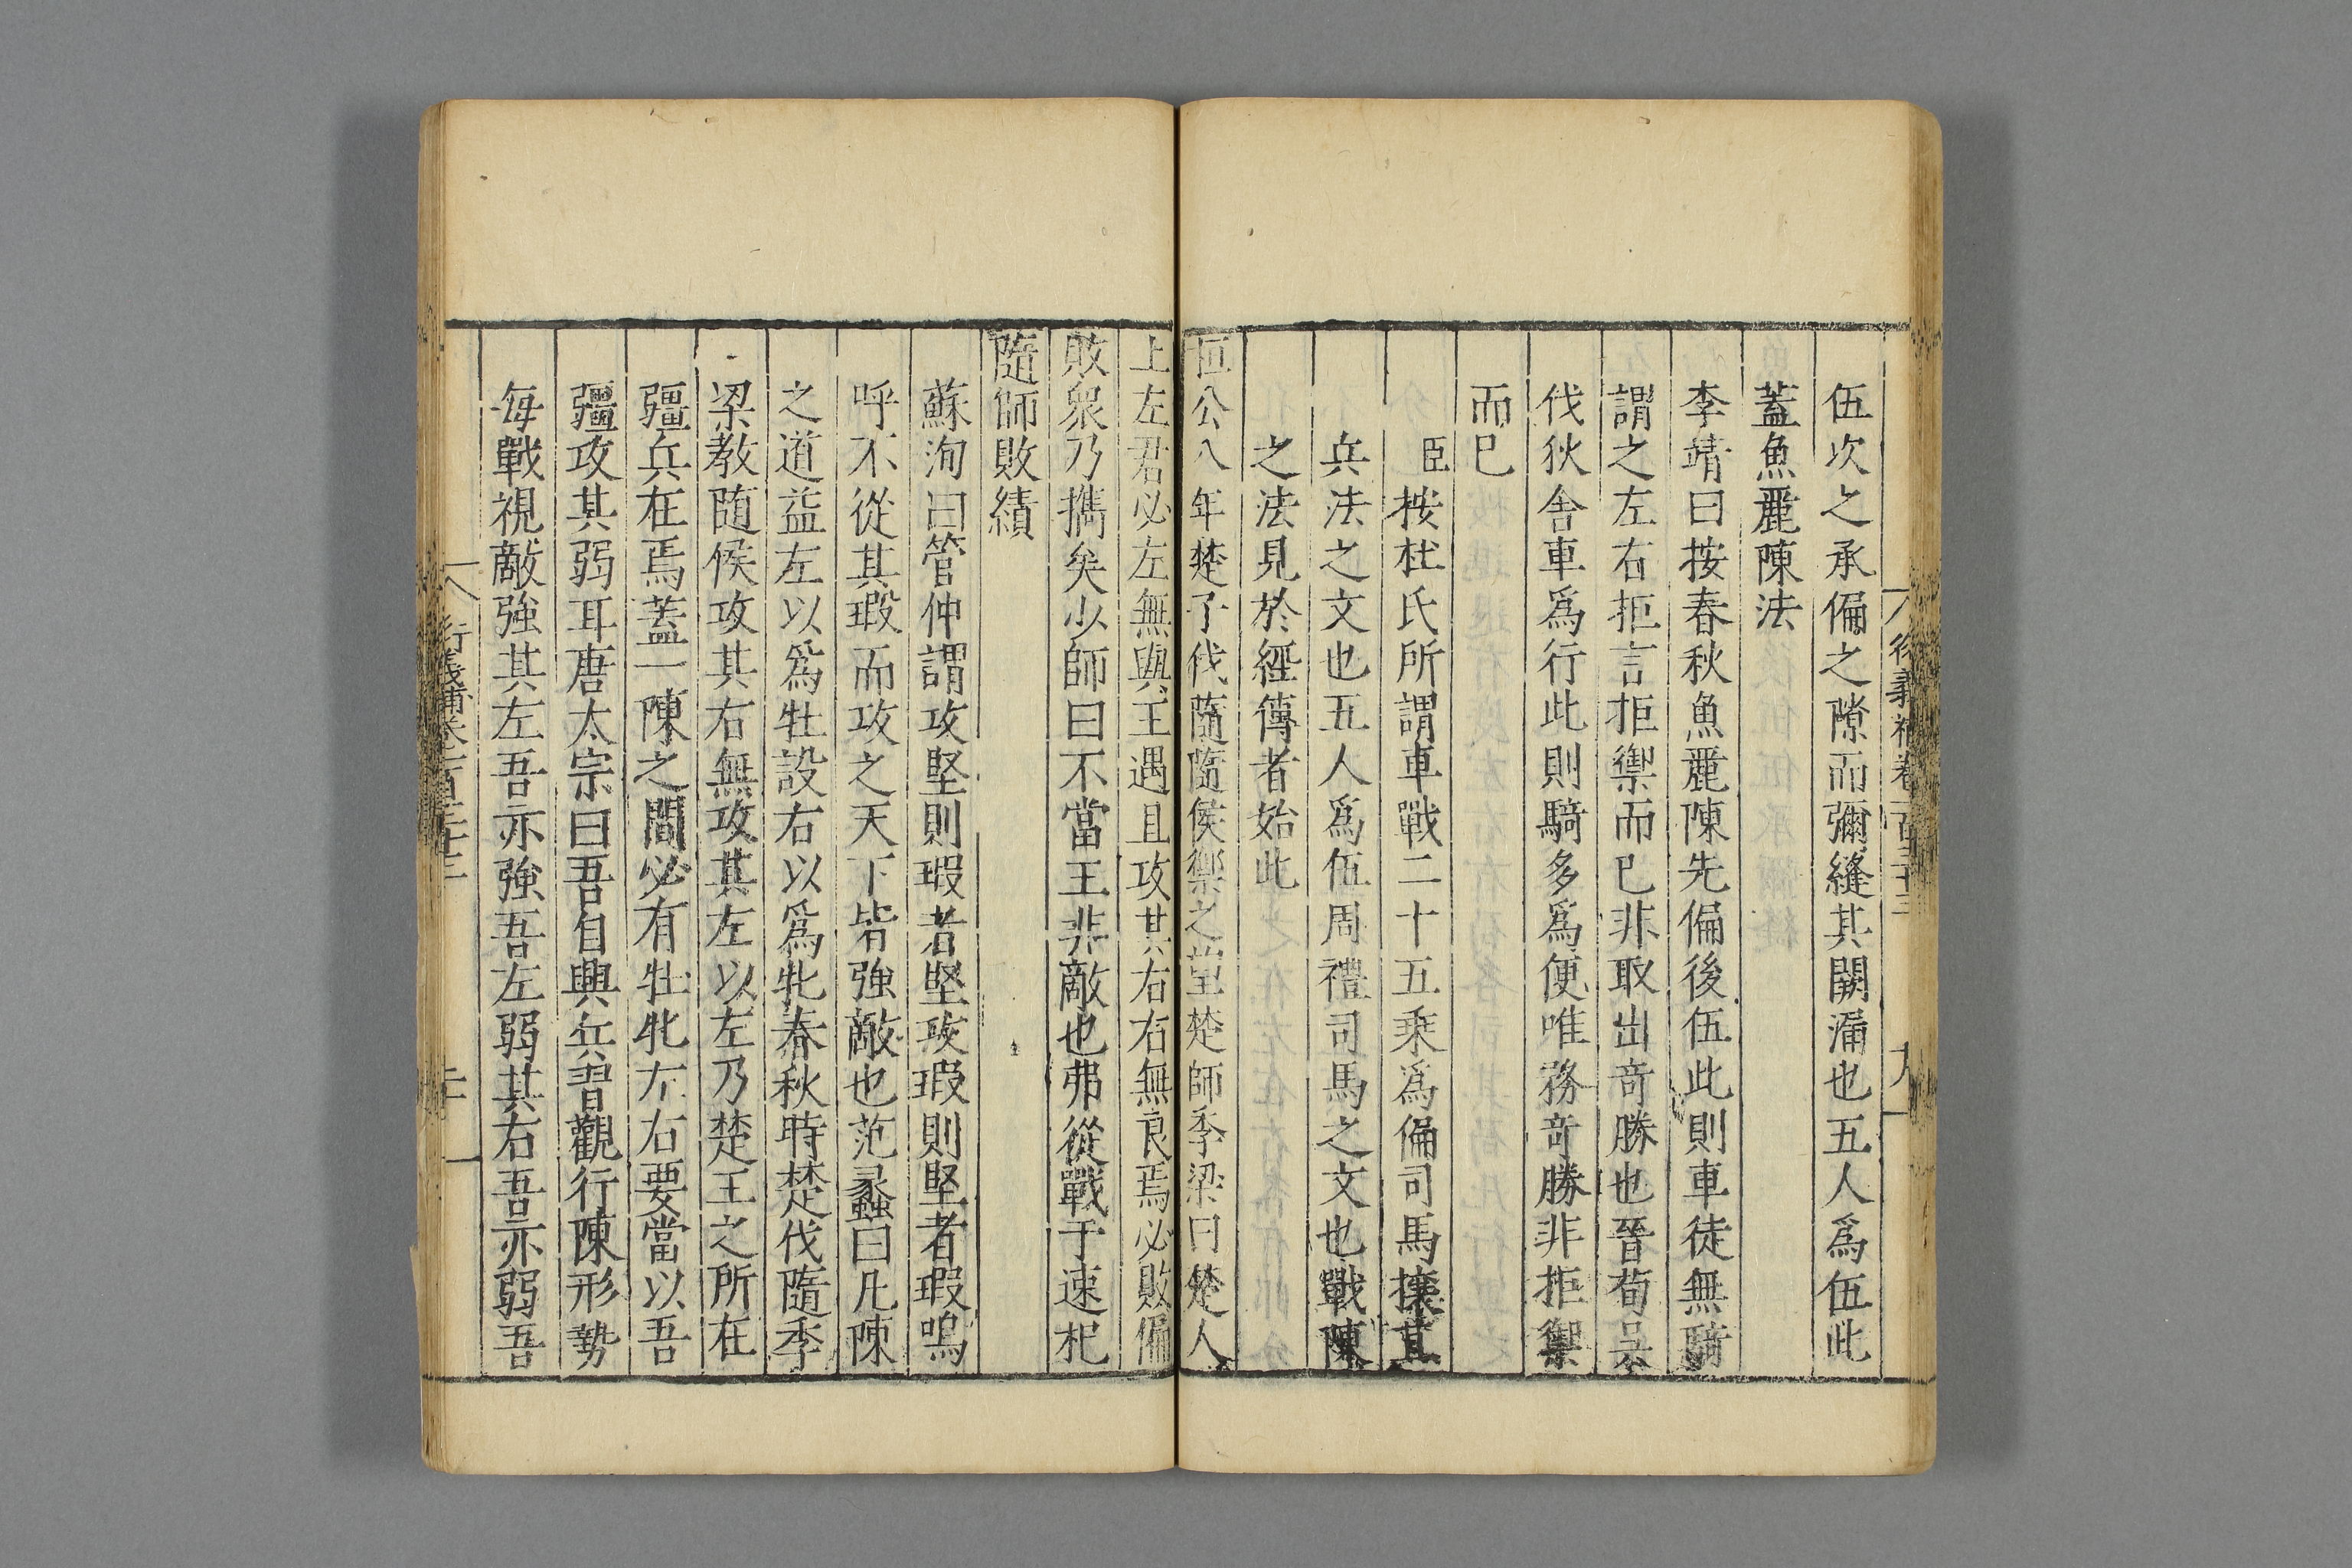 伍次之承偏之隙而彌縫其闕漏也五人爲伍此
蓋魚麗陳法
李靖曰按春秋魚麗陳先偏後伍此則車徒無騎
謂之左右拒言拒禦而已非取出奇勝也晉荀吳
伐狄舍車爲行此則騎多爲便唯務奇勝非拒禦
而已
臣按杜氏所謂車戰二十五乘爲偏司馬穰苴
兵法之文也五人爲伍周禮司馬之文也戰陳
之法見於經傳者始此
桓公八年楚子伐隨隨侯禦之望楚師季梁曰楚人
上左君必左無與王遇且攻其右右無良焉必敗偏
敗衆乃攜矣少師曰不當王非敵也弗從戰于速杞
隨師敗績
蘇洵曰管仲謂攻堅則瑕者堅攻瑕則堅者瑕嗚
呼不從其瑕而攻之天下皆強敵也范蠡曰凡陳
之道益左以爲牡設右以爲牝春秋時楚伐隨季
梁教隨侯攻其右無攻其左以左乃楚王之所在
疆兵在焉蓋一陳之間必有牡牝左右要當以吾
疆攻其弱耳唐太宗曰吾自興兵習觀行陳形勢
每戰視敵強其左吾亦強吾左弱其右吾亦弱吾